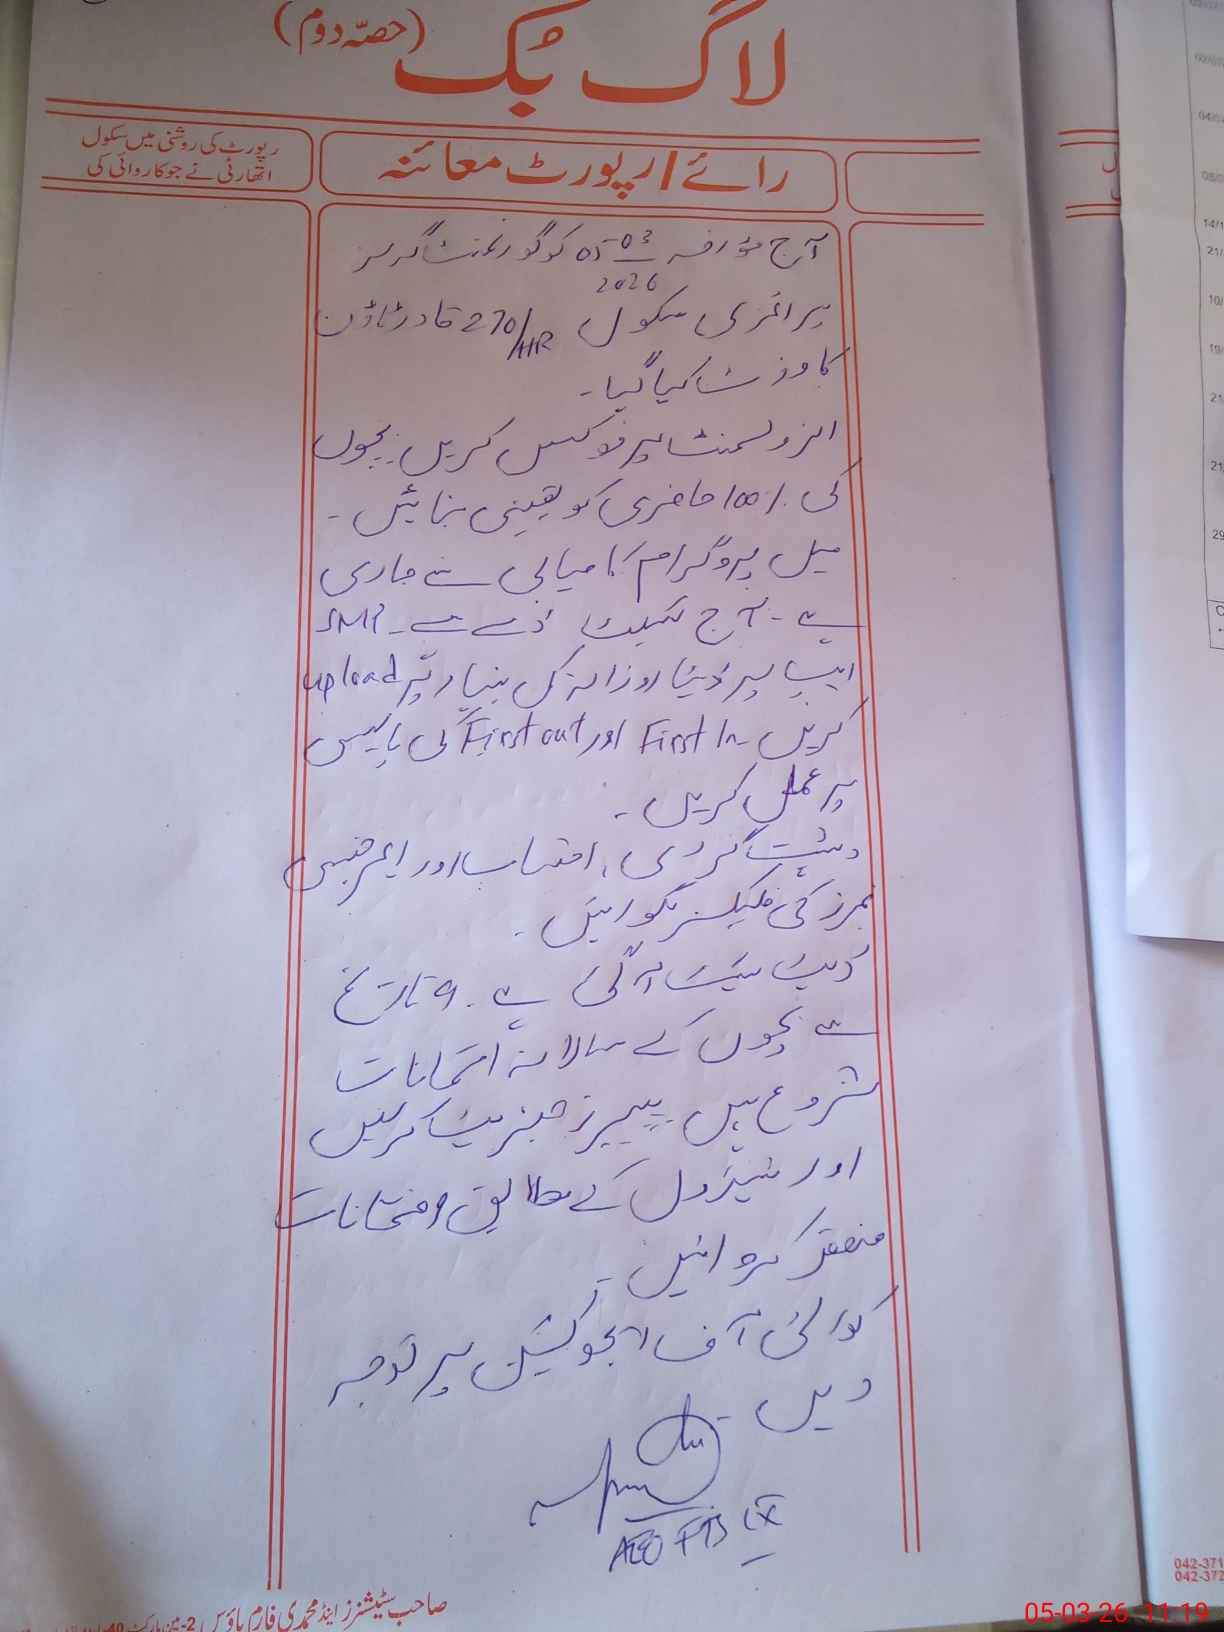 لاگ بُک (حصّہ دوم)
رائے / رپورٹ معائنہ
رپورٹ کی روشنی میں سکول
اتھارٹی نے جو کاروائی کی
آج مورخہ 05-03-2026 کو گورنمنٹ گرلز
پرائمری سکول 270/HR قادر ٹاؤن
کا وزٹ کیا گیا۔
انرولمنٹ پر فوکس کریں۔ بچوں
کی 100% حاضری کو یقینی بنائیں۔
میل پروگرام کامیابی سے جاری
ہے۔ آج ڈے ہے۔ SMP
ایپ پر ڈیٹا روزانہ کی بنیاد پر upload
کریں۔ First In اور First out کی پالیسی
پر عمل کریں۔
دہشت گردی، اور ایمرجنسی
نمبرز کی فلیکسز لگوائیں۔
ڈیٹ شیٹ آ گئی ہے۔ 9 تاریخ
سے بچوں کے سالانہ امتحانات
شروع ہیں۔ پیپرز جنریٹ کر لیں
اور شیڈول کے مطابق امتحانات
منعقد کروائیں۔
کوالٹی آف ایجوکیشن پر توجہ
دیں۔
AEO
صاحب سٹیشنرز اینڈ محمدی فارم ہاؤس 2-مین مارکیٹ
042-371
042-372
05-03-26 11:19